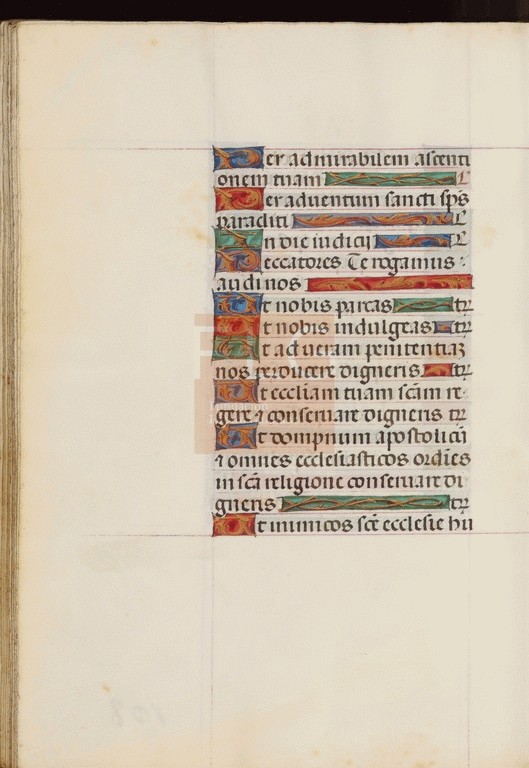 Per admirabilem ascenti
onem tuam l
Per adventum sancti sp̄s
paracliti l
In die iudicij l
Peccatores Te rogamus
audi nos
Ut nobis parcas tr̄
Ut nobis indulgeas tr̄
Ut ad ueram penitentiā
nos perducere digneris tr̄
Ut eccl̄iam tuam sc̄am re
gere ⁊ conseruare digneris tr̄
Ut dompnum apostolicū
⁊ omnes ecclesiasticos ordīes
in sc̄a religione conseruare di
gneris tr̄
Ut inimicos sc̄e ecclesie hu